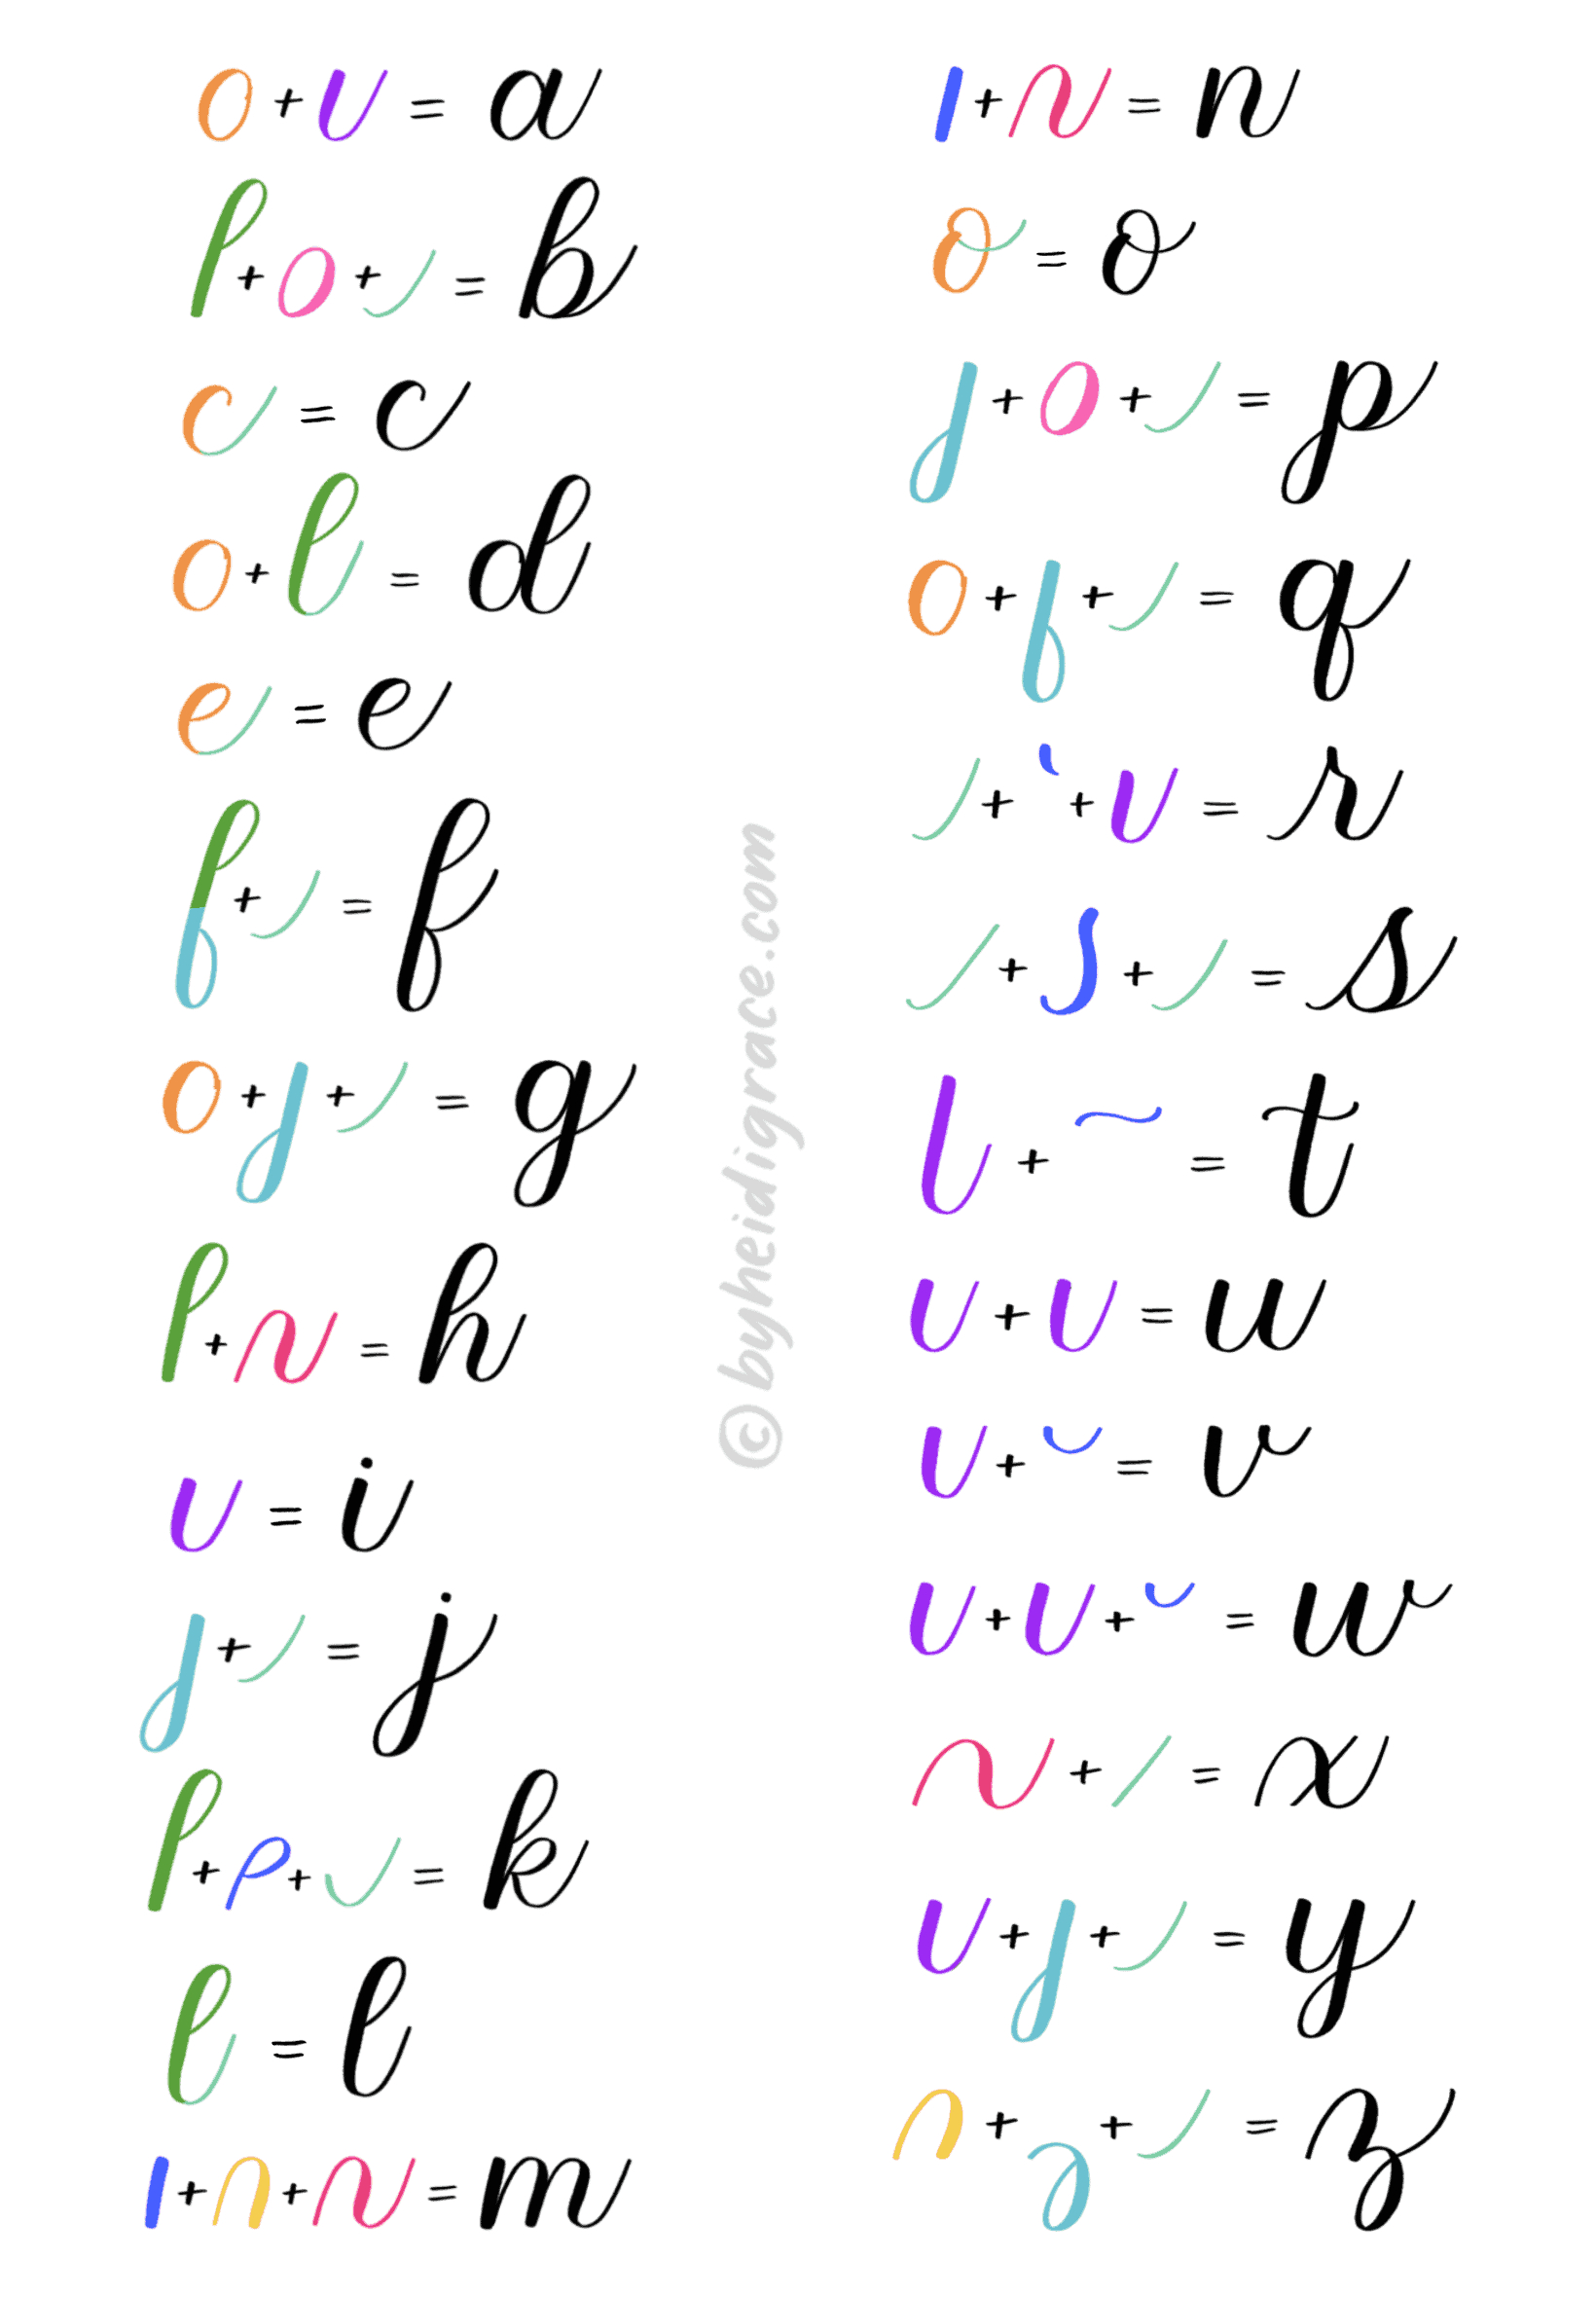 o + υ = a
l + o + ȷ = b
c = c
o + l = d
e = e
f + ȷ = f
o + ȷ + ȷ = g
l + n = h
υ = i
ȷ + ȷ = j
l + ρ + υ = k
l = l
ı + n + n = m
ı + n = n
o = o
ȷ + o + ȷ = p
o + f + ȷ = q
ȷ + ` + υ = r
ȷ + ʃ + ȷ = s
l + ~ = t
υ + υ = u
υ + ˘ = v
υ + υ + ˘ = w
n + / = x
υ + ȷ + ȷ = y
n + ȷ + ȷ = z
© byheidigrace.com